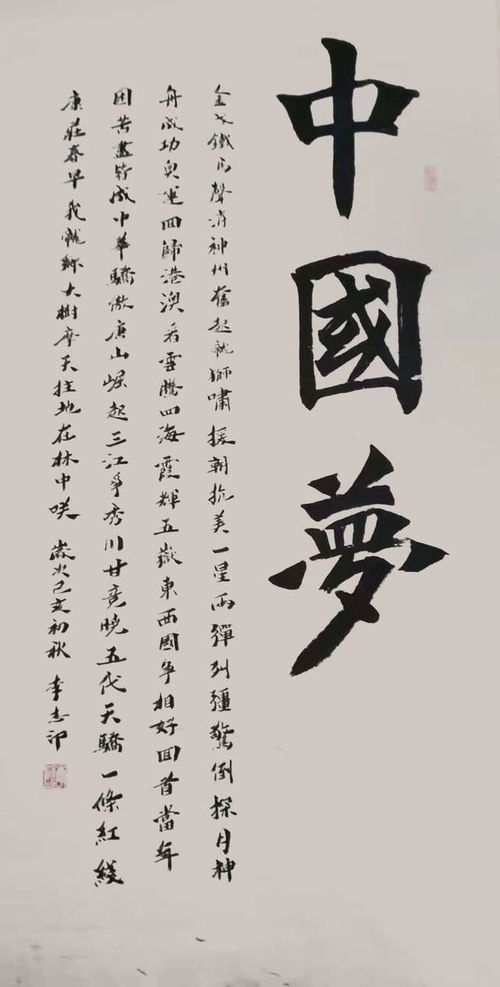 中國夢
金戈鐵馬聲消神州奮起就獅嘯援朝抗美一星兩彈列疆驚倒探月神
舟成功奥運回歸港澳看雲騰四海霞輝五嶽東西國爭相好回首當年
因苦盡皆成中華驕傲唐山崛起三江爭秀川甘竟曉五代天驕一條紅綫
康莊春早我就鄉大樹摩天拄地在林中咲 歲次己亥初秋 李志印